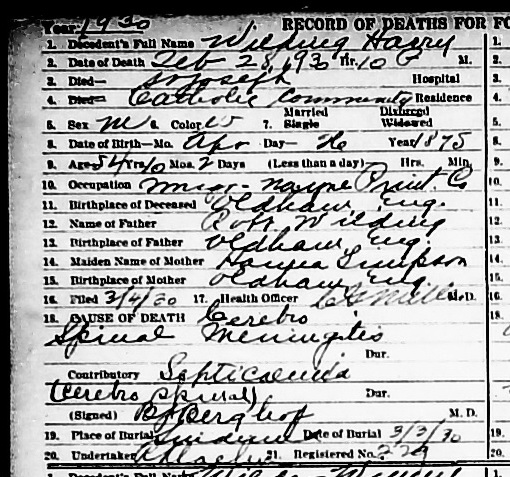 Year 1930 RECORD OF DEATHS FOR
1. Decedent's Full Name Wilding Harry
2. Date of Death Feb 28, 1930 Hr. 10 P M.
3. Died— St Joseph Hospital
4. Died— Catholic Community Residence
5. Sex M Color W 7. Married Single Divorced Widowed
8. Date of Birth—Mo. Apr Day— 26 Year 1875
9. Age 54 Yrs 10 Mos. 2 Days (Less than a day) Hrs. Min.
10. Occupation Mngr - Wayne Print. Co
11. Birthplace of Deceased Oldham, Eng.
12. Name of Father Robt Wilding
13. Birthplace of Father Oldham, Eng
14. Maiden Name of Mother Hanna Simpson
15. Birthplace of Mother Oldham, Eng
16. Filed 3/4/30 17. Health Officer M.D.
18. CAUSE OF DEATH Cerebro
Spinal Meningitis
Dur.
Contributory Septicaemia
(Cerebro Spinal) Dur.
(Signed) Berghof M. D.
19. Place of Burial Date of Burial 3/3/30
20. Undertaker 21. Registered No. 229
1. Decedent's Full Name